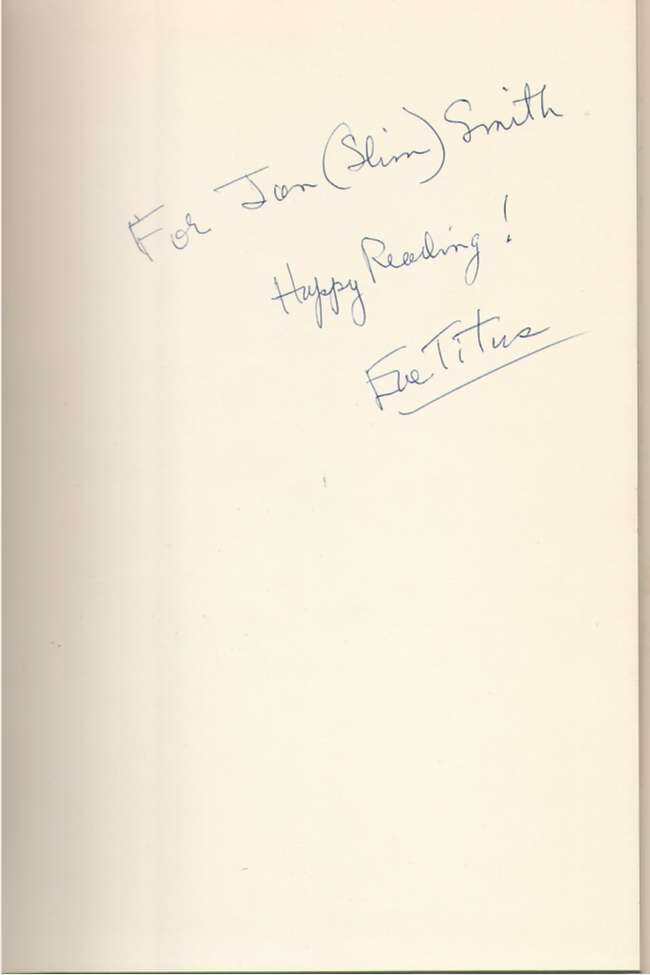 For Jan (Slim) Smith
Happy Reading!
Eve Titus